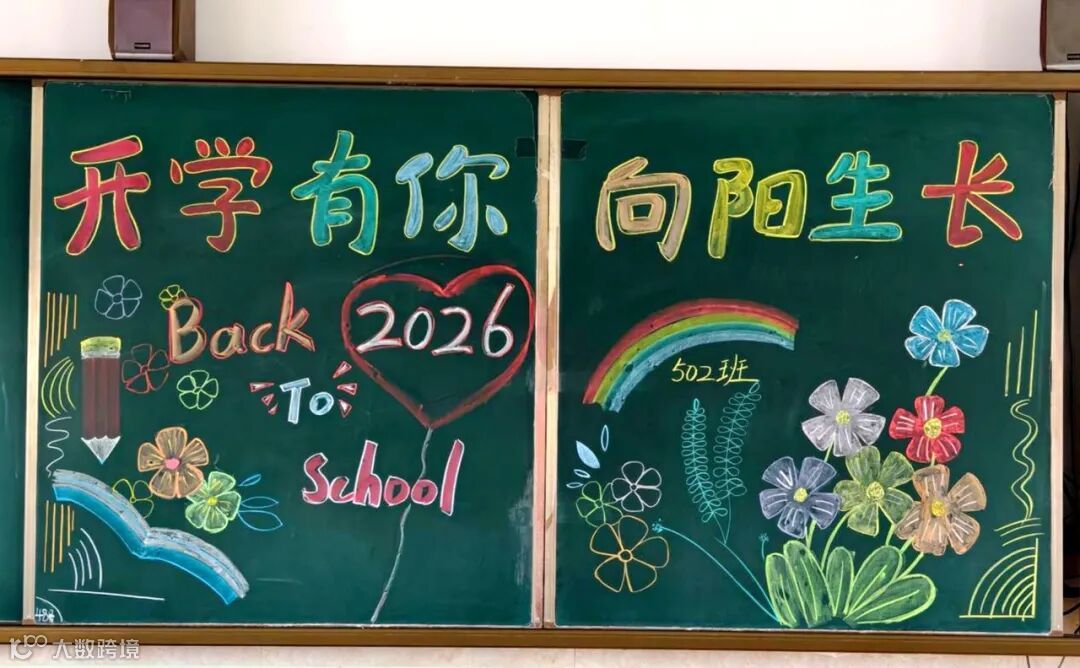 开学有你
Back
To
School
2026
向阳生长
502班
大数跨境